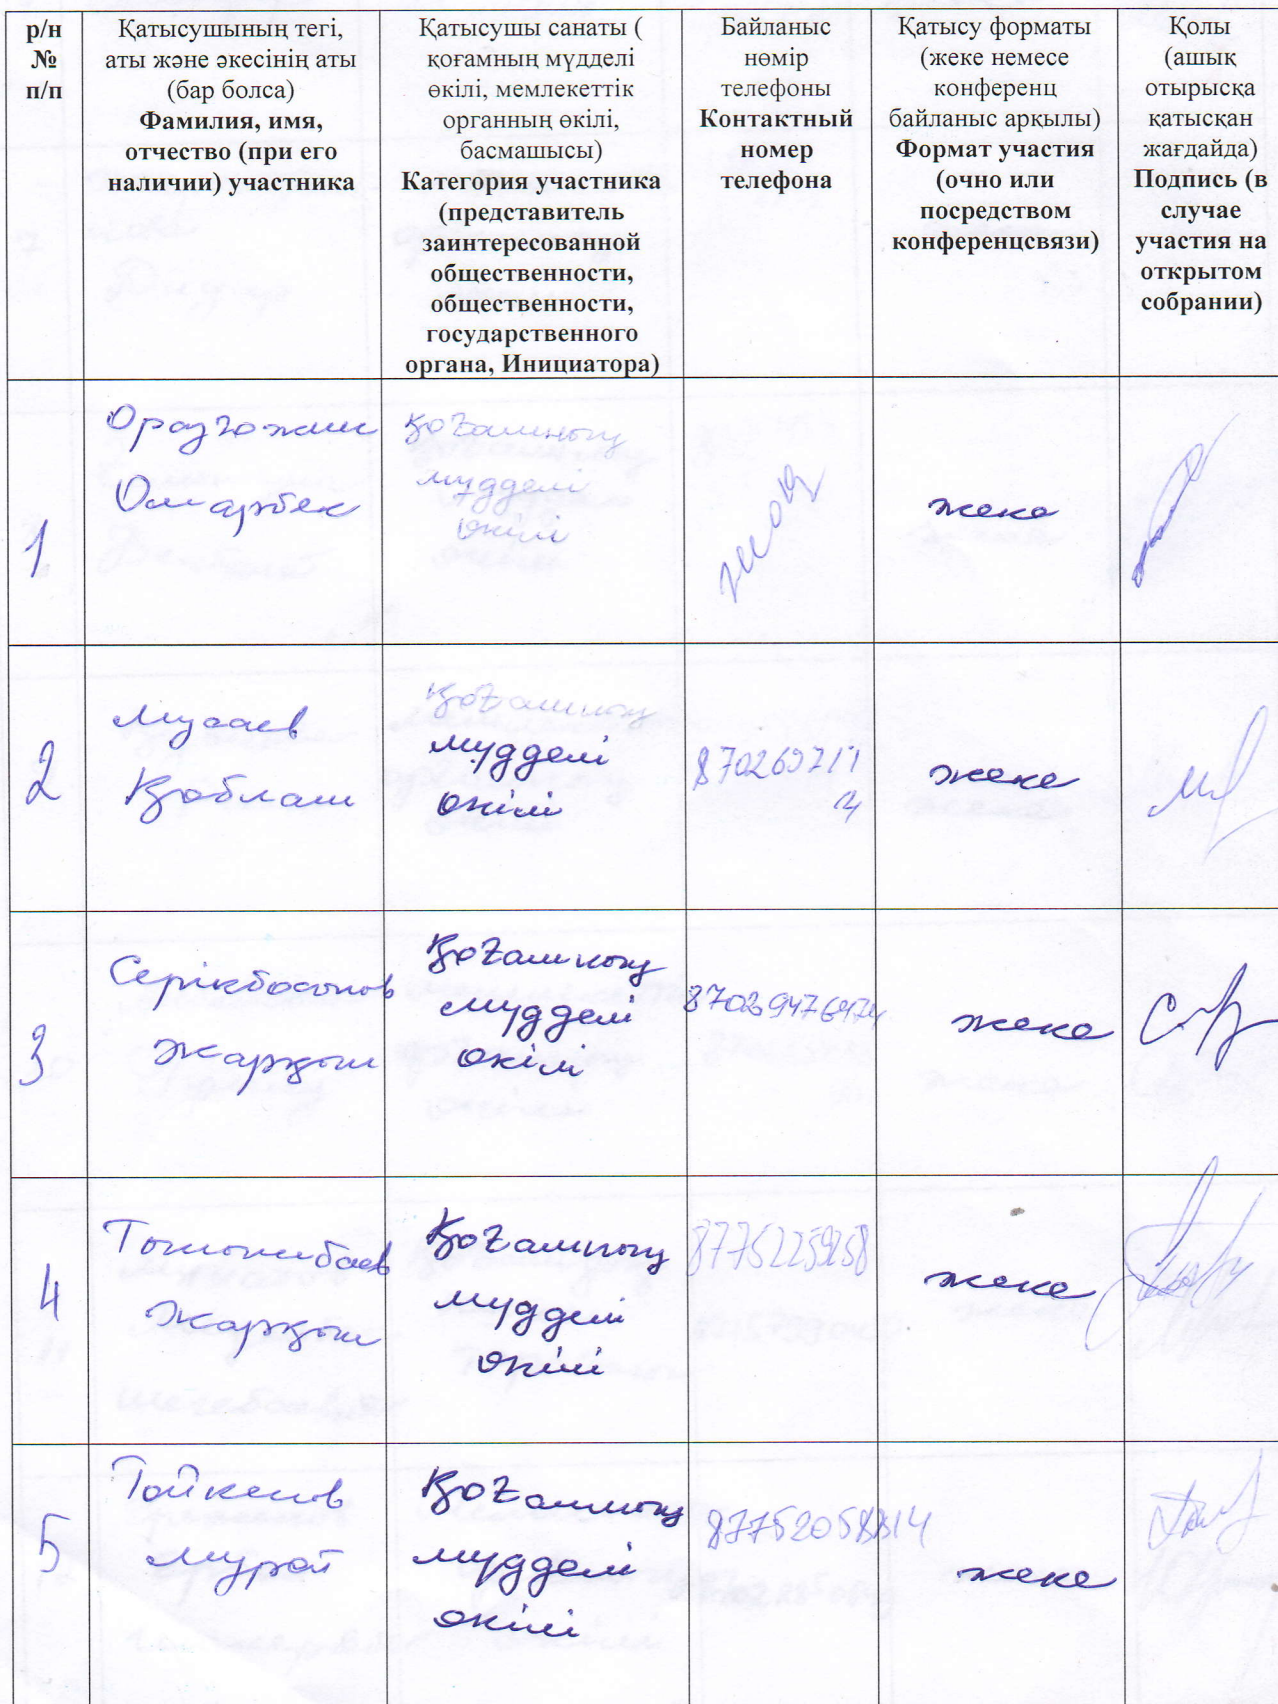 р/н
№
п/п
Қатысушының тегі,
аты және әкесінің аты
(бар болса)
Фамилия, имя,
отчество (при его
наличии) участника
Қатысушы санаты (
қоғамның мүдделі
өкілі, мемлекеттік
органның өкілі,
басмашысы)
Категория участника
(представитель
заинтересованной
общественности,
общественности,
государственного
органа, Инициатора)
Байланыс
нөмір
телефоны
Контактный
номер
телефона
Қатысу форматы
(жеке немесе
конференц
байланыс арқылы)
Формат участия
(очно или
посредством
конференцсвязи)
Қолы
(ашық
отырысқа
қатысқан
жағдайда)
Подпись (в
случае
участия на
открытом
собрании)
1
Оразғожин
Омарбек
қоғамның
мүдделі
өкілі
жоқ
жеке
2
Мусаев
Қоблаш
қоғамның
мүдделі
өкілі
жеке
3
Серікбосынов
Жарқын
қоғамның
мүдделі
өкілі
жеке
4
Жарқын
қоғамның
мүдделі
өкілі
87752259258
жеке
5
Тойкенов
Мурат
қоғамның
мүдделі
өкілі
жеке